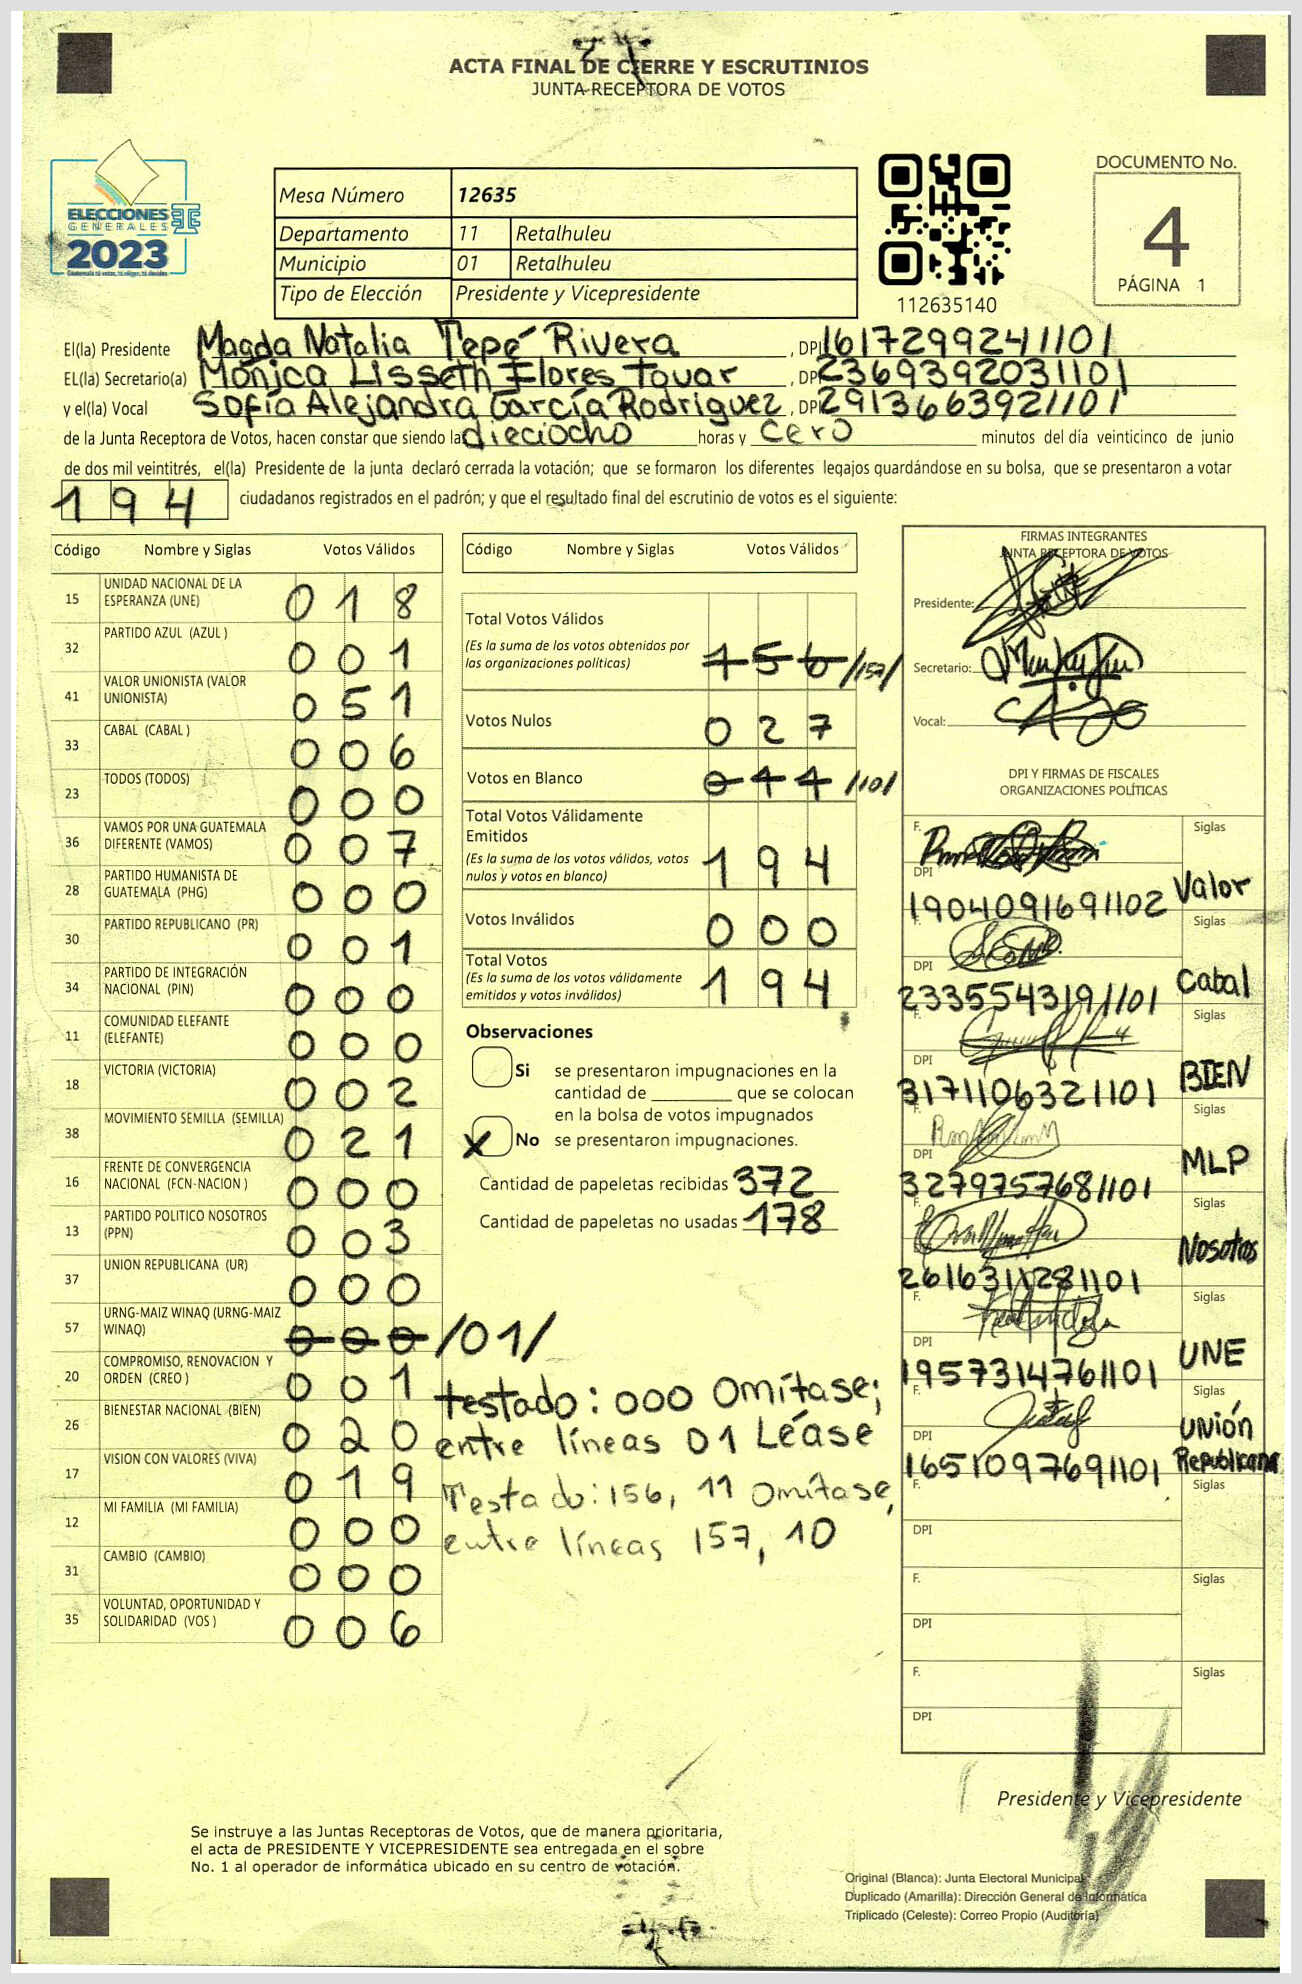 ACTA FINAL DE CIERRE Y ESCRUTINIOS
JUNTA RECEPTORA DE VOTOS
ELECCIONES
GENERALES
2023
Mesa Número 12635
Departamento 11 Retalhuleu
Municipio 01 Retalhuleu
Tipo de Elección Presidente y Vicepresidente
112635140
DOCUMENTO No.
4
PÁGINA 1
El(la) Presidente Magda Natalia Tepé Rivera, DPI 1617299241101
EL(la) Secretario(a) Mónica Lisseth Flores Tovar, DPI 2369392031101
y el(la) Vocal Sofía Alejandra García Rodriguez, DPI 2913663921101
de la Junta Receptora de Votos, hacen constar que siendo la dieciocho horas y cero minutos del día veinticinco de junio
de dos mil veintitrés, el(la) Presidente de la junta declaró cerrada la votación; que se formaron los diferentes legajos guardándose en su bolsa, que se presentaron a votar
194 ciudadanos registrados en el padrón; y que el resultado final del escrutinio de votos es el siguiente:
Código Nombre y Siglas Votos Válidos
15 UNIDAD NACIONAL DE LA ESPERANZA (UNE) 018
32 PARTIDO AZUL (AZUL ) 001
41 VALOR UNIONISTA (VALOR UNIONISTA) 051
33 CABAL (CABAL ) 006
23 TODOS (TODOS) 000
36 VAMOS POR UNA GUATEMALA DIFERENTE (VAMOS) 007
28 PARTIDO HUMANISTA DE GUATEMALA (PHG) 000
30 PARTIDO REPUBLICANO (PR) 001
34 PARTIDO DE INTEGRACIÓN NACIONAL (PIN) 000
11 COMUNIDAD ELEFANTE (ELEFANTE) 000
18 VICTORIA (VICTORIA) 002
38 MOVIMIENTO SEMILLA (SEMILLA) 021
16 FRENTE DE CONVERGENCIA NACIONAL (FCN-NACION ) 000
13 PARTIDO POLITICO NOSOTROS (PPN) 003
37 UNION REPUBLICANA (UR) 000
57 URNG-MAIZ WINAQ (URNG-MAIZ WINAQ) 000 /01/
20 COMPROMISO, RENOVACION Y ORDEN (CREO ) 001
26 BIENESTAR NACIONAL (BIEN) 020
17 VISION CON VALORES (VIVA) 019
12 MI FAMILIA (MI FAMILIA) 000
31 CAMBIO (CAMBIO) 000
35 VOLUNTAD, OPORTUNIDAD Y SOLIDARIDAD (VOS ) 006
Código Nombre y Siglas Votos Válidos
Total Votos Válidos
(Es la suma de los votos obtenidos por
las organizaciones políticas) 156 /157/
Votos Nulos 027
Votos en Blanco 011 /10/
Total Votos Válidamente
Emitidos
(Es la suma de los votos válidos, votos
nulos y votos en blanco) 194
Votos Inválidos 000
Total Votos
(Es la suma de los votos válidamente
emitidos y votos inválidos) 194
Observaciones
Si se presentaron impugnaciones en la
cantidad de ________ que se colocan
en la bolsa de votos impugnados
X No se presentaron impugnaciones.
Cantidad de papeletas recibidas 372
Cantidad de papeletas no usadas 178
testado: 000 Omítase;
entre líneas 01 Léase
Testado: 156, 11 Omítase,
entre líneas 157, 10
FIRMAS INTEGRANTES
JUNTA RECEPTORA DE VOTOS
Presidente:
Secretario:
Vocal:
DPI Y FIRMAS DE FISCALES
ORGANIZACIONES POLÍTICAS
F. Siglas
DPI 1904091691102 Valor
F. Siglas
DPI 2335543191101 Cabal
F. Siglas
DPI 3171106321101 BIEN
F. Siglas
DPI 3279757681101 MLP
F. Siglas
2616311281101 Nosotros
F. Siglas
DPI 1957314761101 UNE
F. Siglas
DPI 1651097691101 Unión Republicana
F. Siglas
DPI
F. Siglas
DPI
F. Siglas
DPI
Presidente y Vicepresidente
Se instruye a las Juntas Receptoras de Votos, que de manera prioritaria,
el acta de PRESIDENTE Y VICEPRESIDENTE sea entregada en el sobre
No. 1 al operador de informática ubicado en su centro de votación.
Original (Blanca): Junta Electoral Municipal
Duplicado (Amarilla): Dirección General de Informática
Triplicado (Celeste): Correo Propio (Auditoría)